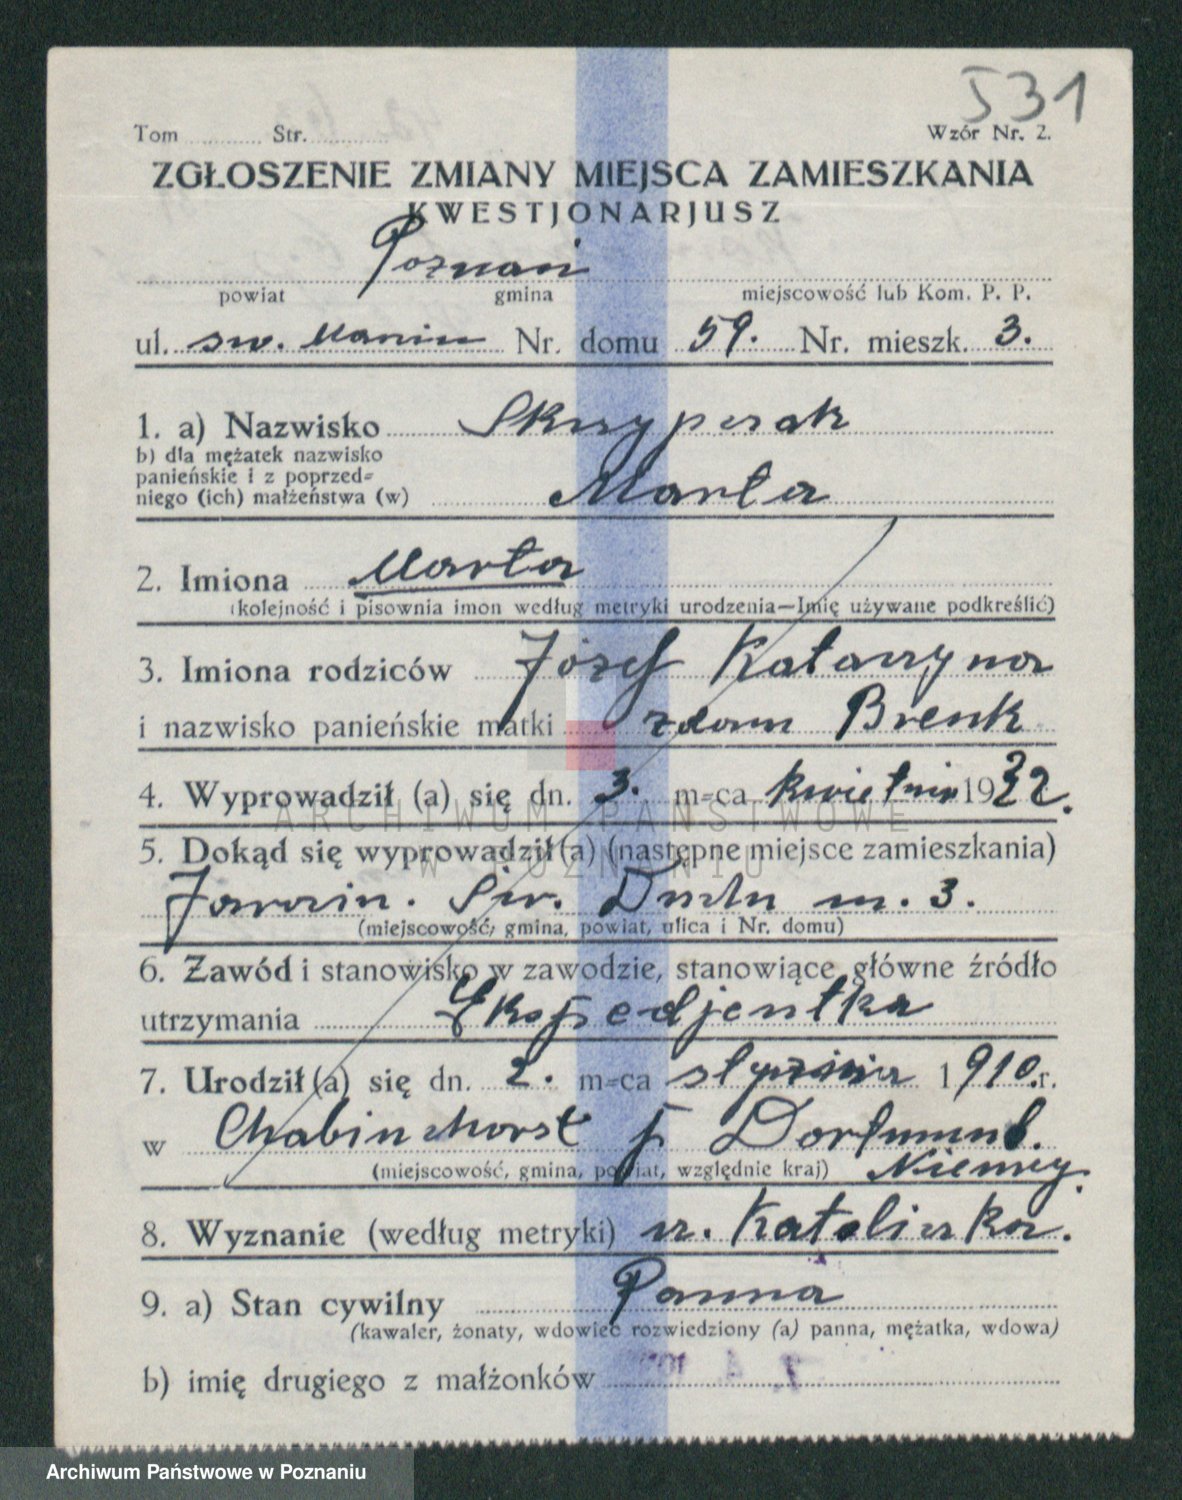 531
Tom ........ Str. ........ Wzór Nr. 2.
ZGŁOSZENIE ZMIANY MIEJSCA ZAMIESZKANIA
KWESTJONARJUSZ
Poznań
powiat gmina miejscowość lub Kom. P. P.
ul. św. Marcin Nr. domu 59. Nr. mieszk. 3.
1. a) Nazwisko Skrzypczak
b) dla mężatek nazwisko
panieńskie i z poprzed=
niego (ich) małżeństwa (w) Marta
2. Imiona Marta
(kolejność i pisownia imon według metryki urodzenia—Imię używane podkreślić)
3. Imiona rodziców Józef Katarzyna
i nazwisko panieńskie matki zdom Brenk
4. Wyprowadził (a) się dn. 3. m=ca kwietnia 1932.
ARCHIWUM PAŃSTWOWE
W POZNANIU
5. Dokąd się wyprowadził(a) (następne miejsce zamieszkania)
Jarocin. Św. Ducha m. 3.
(miejscowość, gmina, powiat, ulica i Nr. domu)
6. Zawód i stanowisko w zawodzie, stanowiące główne źródło
utrzymania Ekspedjentka
7. Urodził (a) się dn. 2. m=ca stycznia 1910.r.
w p Dortmund.
(miejscowość, gmina, powiat, względnie kraj) Niemcy.
8. Wyznanie (według metryki) rz. Katolicka.
9. a) Stan cywilny Panna
(kawaler, żonaty, wdowiec rozwiedziony (a) panna, mężatka, wdowa)
b) imię drugiego z małżonków
Archiwum Państwowe w Poznaniu